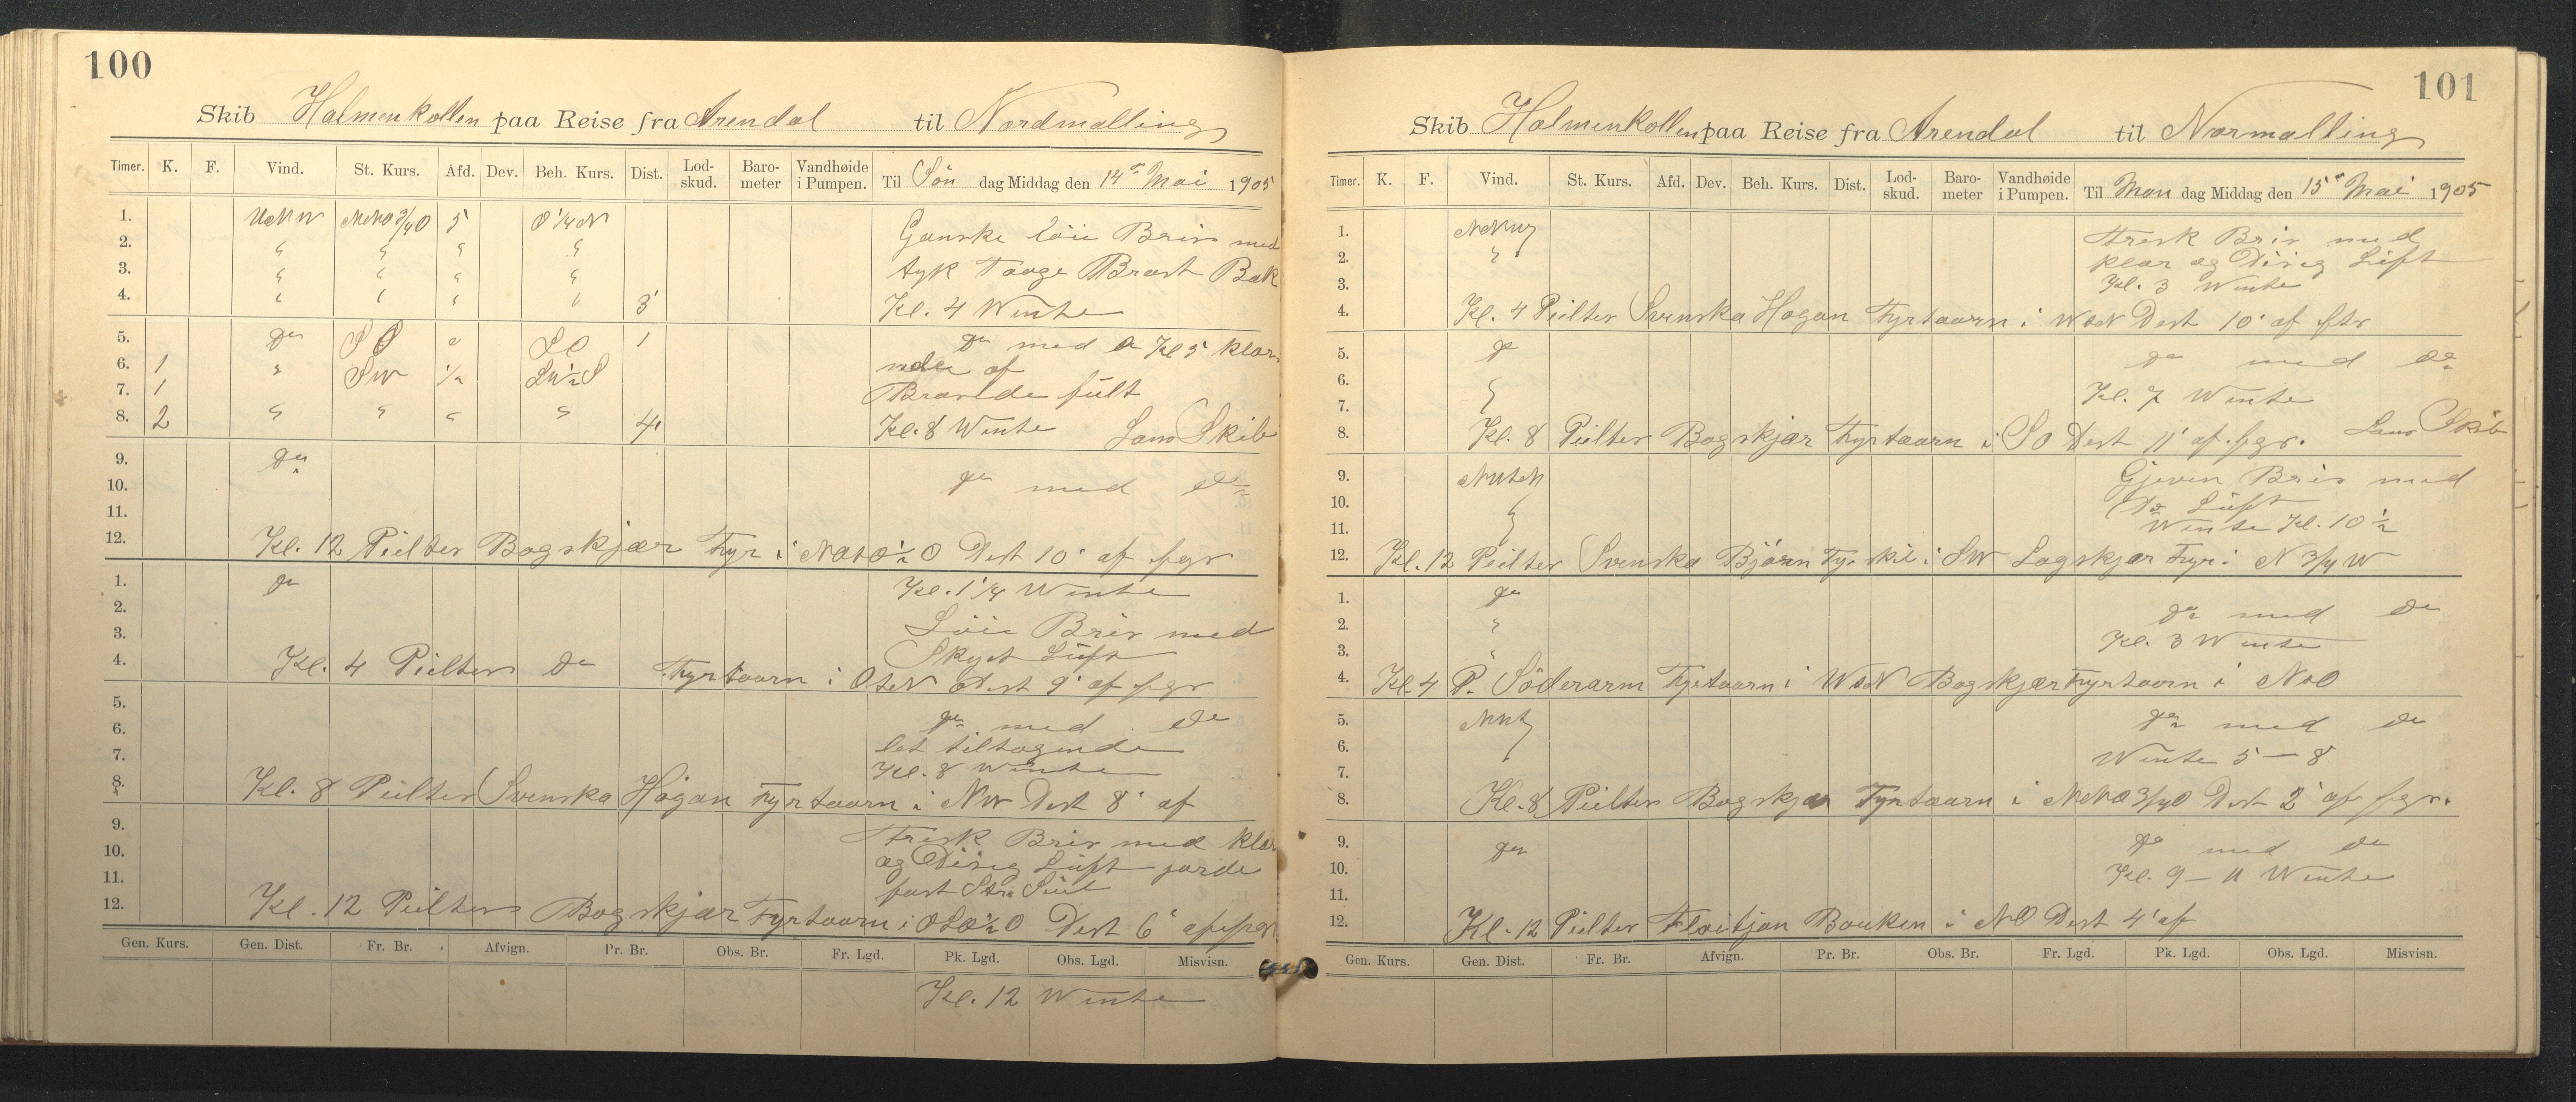 100
Skib Holmenkollen paa Reise fra Arendal til Nordmalling
Timer. K. F. Vind. St. Kurs. Afd. Dev. Beh. Kurs. Dist. Lod-skud. Baro-meter Vandhøide i Pumpen. Til Søn dag Middag den 14de Mai 1905
1. NNW NNO3/4O 5 O1/4N Ganske løie Bris med
2. " " " "
3. " " " " tyk Taage Brast Bak
4. " " " " 3' Kl. 4 Wente
5. do SO " SO 1 do med Kl 5 klar
6. 1 " SW 1/2 SW1/2S af
7. 1 Brasede fult
8. 2 " " " " 4' Kl. 8 Wente Lans Skib
9. do
10. do med do
11.
12. Kl. 12 Peilter Bogskjær Fyr i 1/2 O Dist 10' af fgr
1. do Kl. 1 1/4 Wente
2. Løie Bris med
3. Skyet Luft
4. Kl. 4 Peilter do Fyrtaarn i OtN Dist 9' af fgr
5. do med do
6. let tiltagende
7. Kl. 8 Wente
8. Kl. 8 Peilter Svenska Høgan Fyrtaarn i NW Dist 8' af
9. Fresk Bris med klar
10. og Disig Luft jorde
11. fast Seil
12. Kl. 12 Peilter Bogskjær Fyrtaarn i OSO1/2O Dist 6' af fgr
Gen. Kurs. Gen. Dist. Fr. Br. Afvign. Pr. Br. Obs. Br. Fr. Lgd. Pk. Lgd. Obs. Lgd. Misvisn.
Kl. 12 Wente
101
Skib Holmenkollen paa Reise fra Arendal til Normalling
Timer. K. F. Vind. St. Kurs. Afd. Dev. Beh. Kurs. Dist. Lod-skud. Baro-meter Vandhøide i Pumpen. Til Man dag Middag den 15de Mai 1905
1. NNW Fresk Bris med
2. " klar og Disig Luft
3. Kl. 3 Wente
4. Kl. 4 Peilter Svenska Høgan Fyrtaarn i WtN Dist 10' af ftr
5. do do med do
6. "
7. Kl. 7 Wente
8. Kl. 8 Peilter Bogskjær Fyrtaarn i SO Dist 11' af fgr. Lans Skib
9. NWtN Gjeven Bris med
10. " Do Luft
11. Wente Kl. 10 1/2
12. Kl. 12 Peilter Svenska Bjørn Fyrskib i SW Lagskjær Fyr i N 3/4 W
1. do do med do
2. "
3. " Kl. 3 Wente
4. Kl. 4 P. Söderarm Fyrtaarn i WtN Bogskjær Fyrtaarn i NtO
5. NW do med do
6.
7. Wente 5 – 8
8. Kl. 8 Peilter Bogskjær Fyrtaarn i NNO3/4O Dist 2' af fgr.
9. do do med do
10. Kl. 9 – 11 Wente
11.
12. Kl. 12 Peilter Fløitjan Bouken i NO Dist 4' af
Gen. Kurs. Gen. Dist. Fr. Br. Afvign. Pr. Br. Obs. Br. Fr. Lgd. Pk. Lgd. Obs. Lgd. Misvisn.